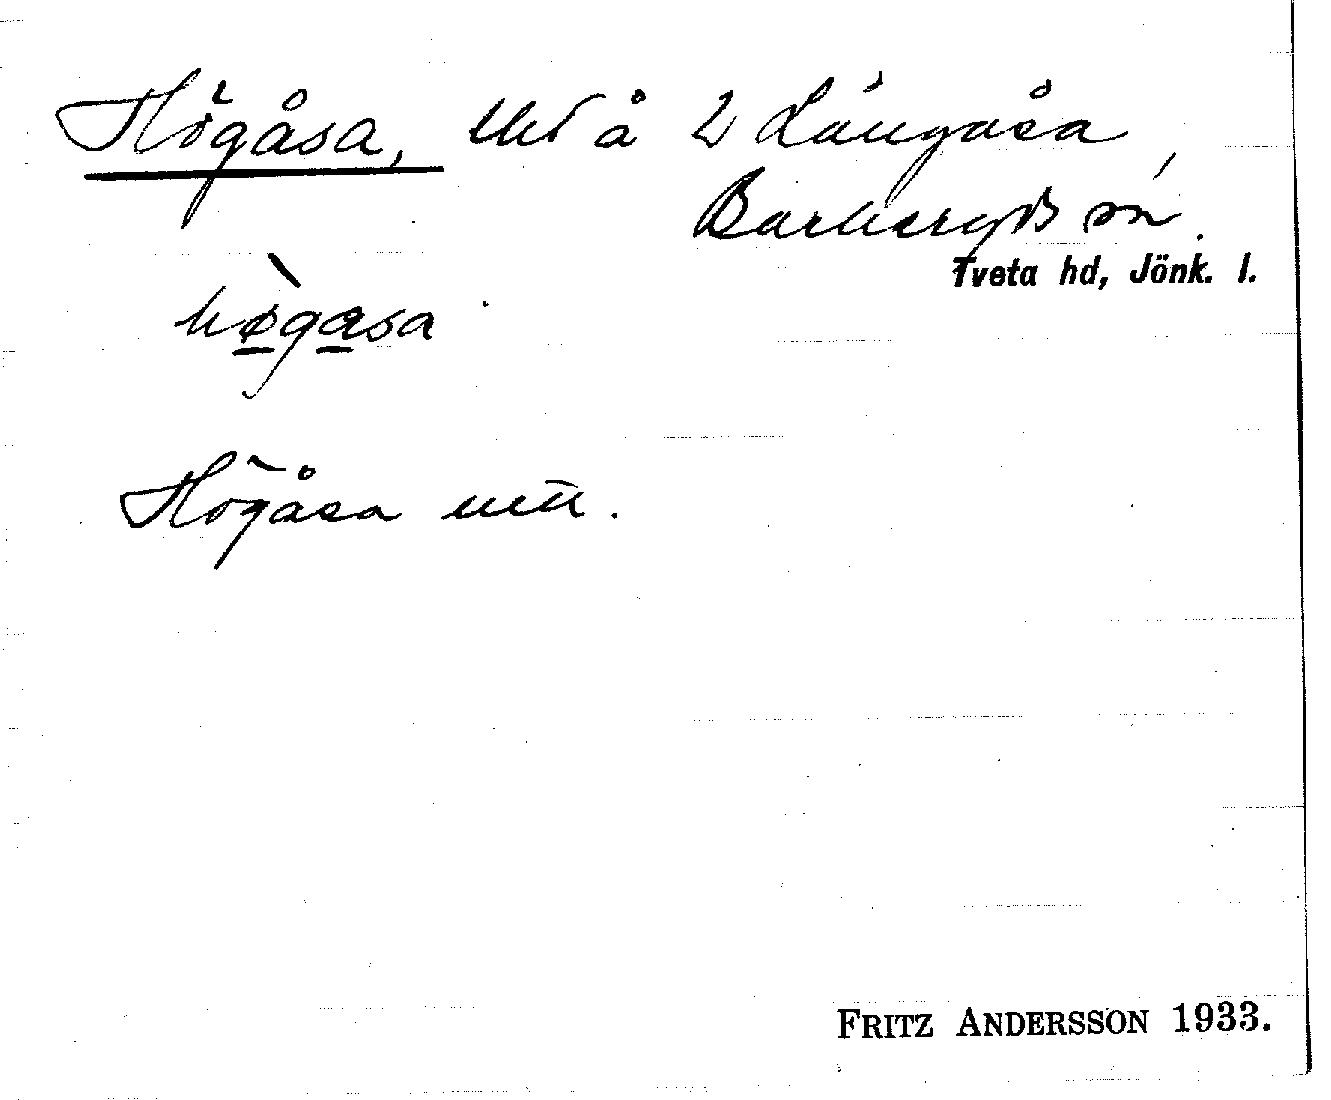 Högåsa, uts å 2 Långåsa,
Barkeryds sn.
Tveta hd, Jönk. l.
hø̱ga̱sa
Högåsa
FRITZ ANDERSSON 1933.